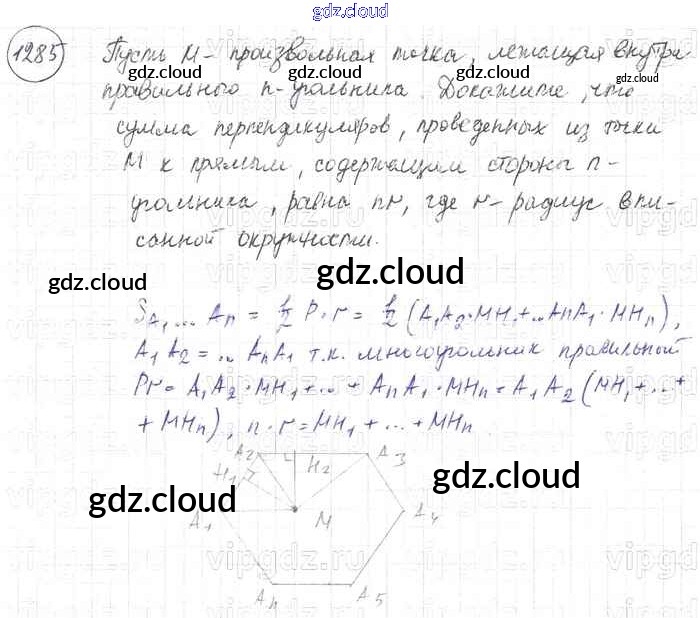 gdz.cloud
1285 Пусть M- произвольная точка, лежащая внутри
gdz.cloud
правильного n-угольника. Докажите, что
сумма перпендикуляров, проведенных из точки
M к прямым, содержащим стороны n-
угольника, равна nr, где r- радиус впи-
санной окружности.
gdz.cloud gdz.cloud
S A₁ ... Aₙ = 1/2 P·r = 1/2 (A₁A₂·MH₁+...AₙA₁·MHₙ),
A₁A₂ = ... AₙA₁ т.к. многоугольник правильный
Pr = A₁A₂·MH₁+...+AₙA₁·MHₙ = A₁A₂(MH₁+...+
+MHₙ), n·r = MH₁+...+MHₙ
A₂ H₂ A₃
H₁
gdz.cloud gdz.cloud
A₁ M A₄
Aₙ A₅